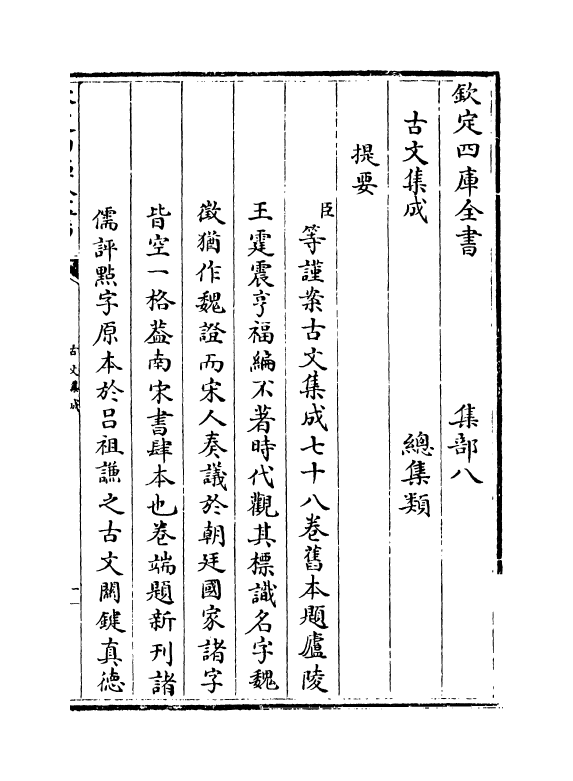 欽定四庫全書　集部八
古文集成　總集類
提要
臣等謹案古文集成七十八卷舊本題廬陵
王霆震亨福編不著時代觀其標識名字魏
徵猶作魏證而宋人奏議於朝廷國家諸字
皆空一格葢南宋書肆本也卷端題新刊諸
儒評點字原本於吕祖謙之古文關鍵真德
古文集成